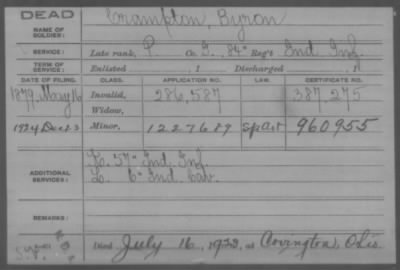 DEAD
NAME OF SOLDIER: Crampton, Byron
SERVICE: Late rank, P. Co. I, 84" Reg't Ind. Inf.
TERM OF SERVICE: Enlisted , 1 Discharged , 1
DATE OF FILING. CLASS. APPLICATION NO. LAW. CERTIFICATE NO.
1879, May 16 Invalid, 286,587 387,275
Widow,
1924 Dec 23 Minor, 1227689 Sp Act 960955
ADDITIONAL SERVICES: L. 57" Ind. Inf.
L. 6" Ind. Cav.
REMARKS:
Died July 16, 1923, at Covington, Ohio.